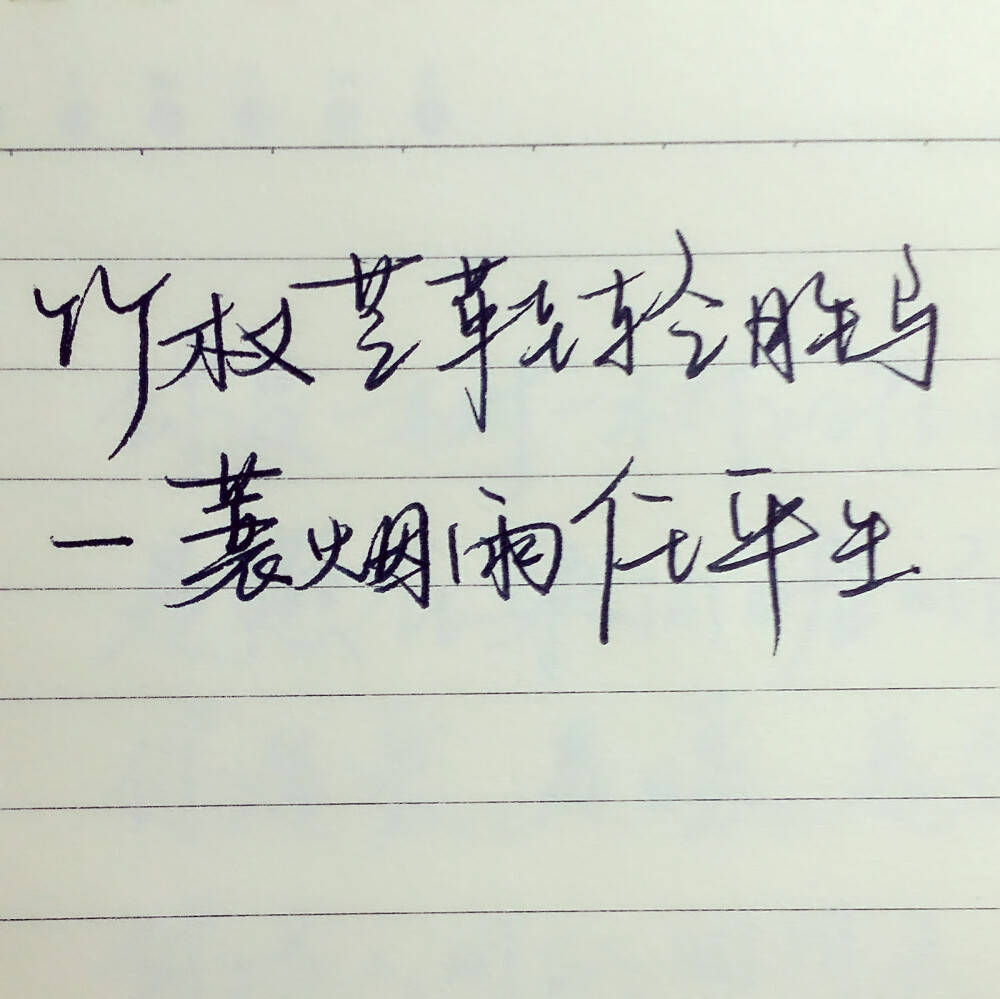 竹杖芒鞋轻胜马
一蓑烟雨任平生